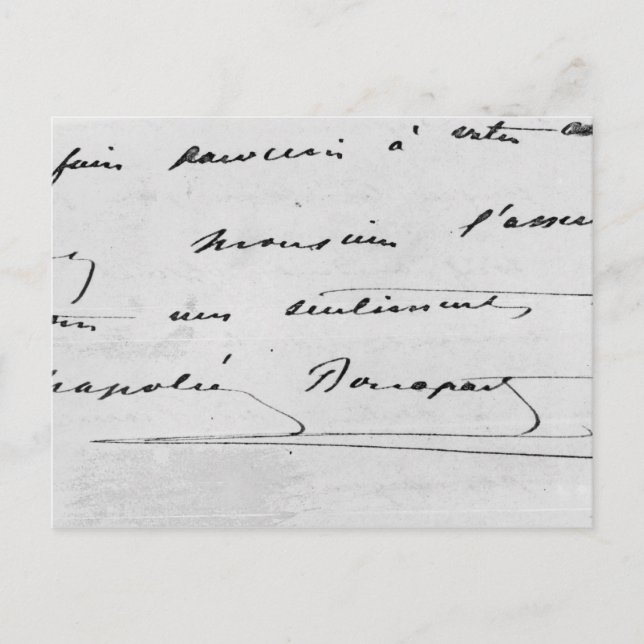 fair parvenir à votre
monsieur l'assu
mes sentiments
napoléo Bonapart